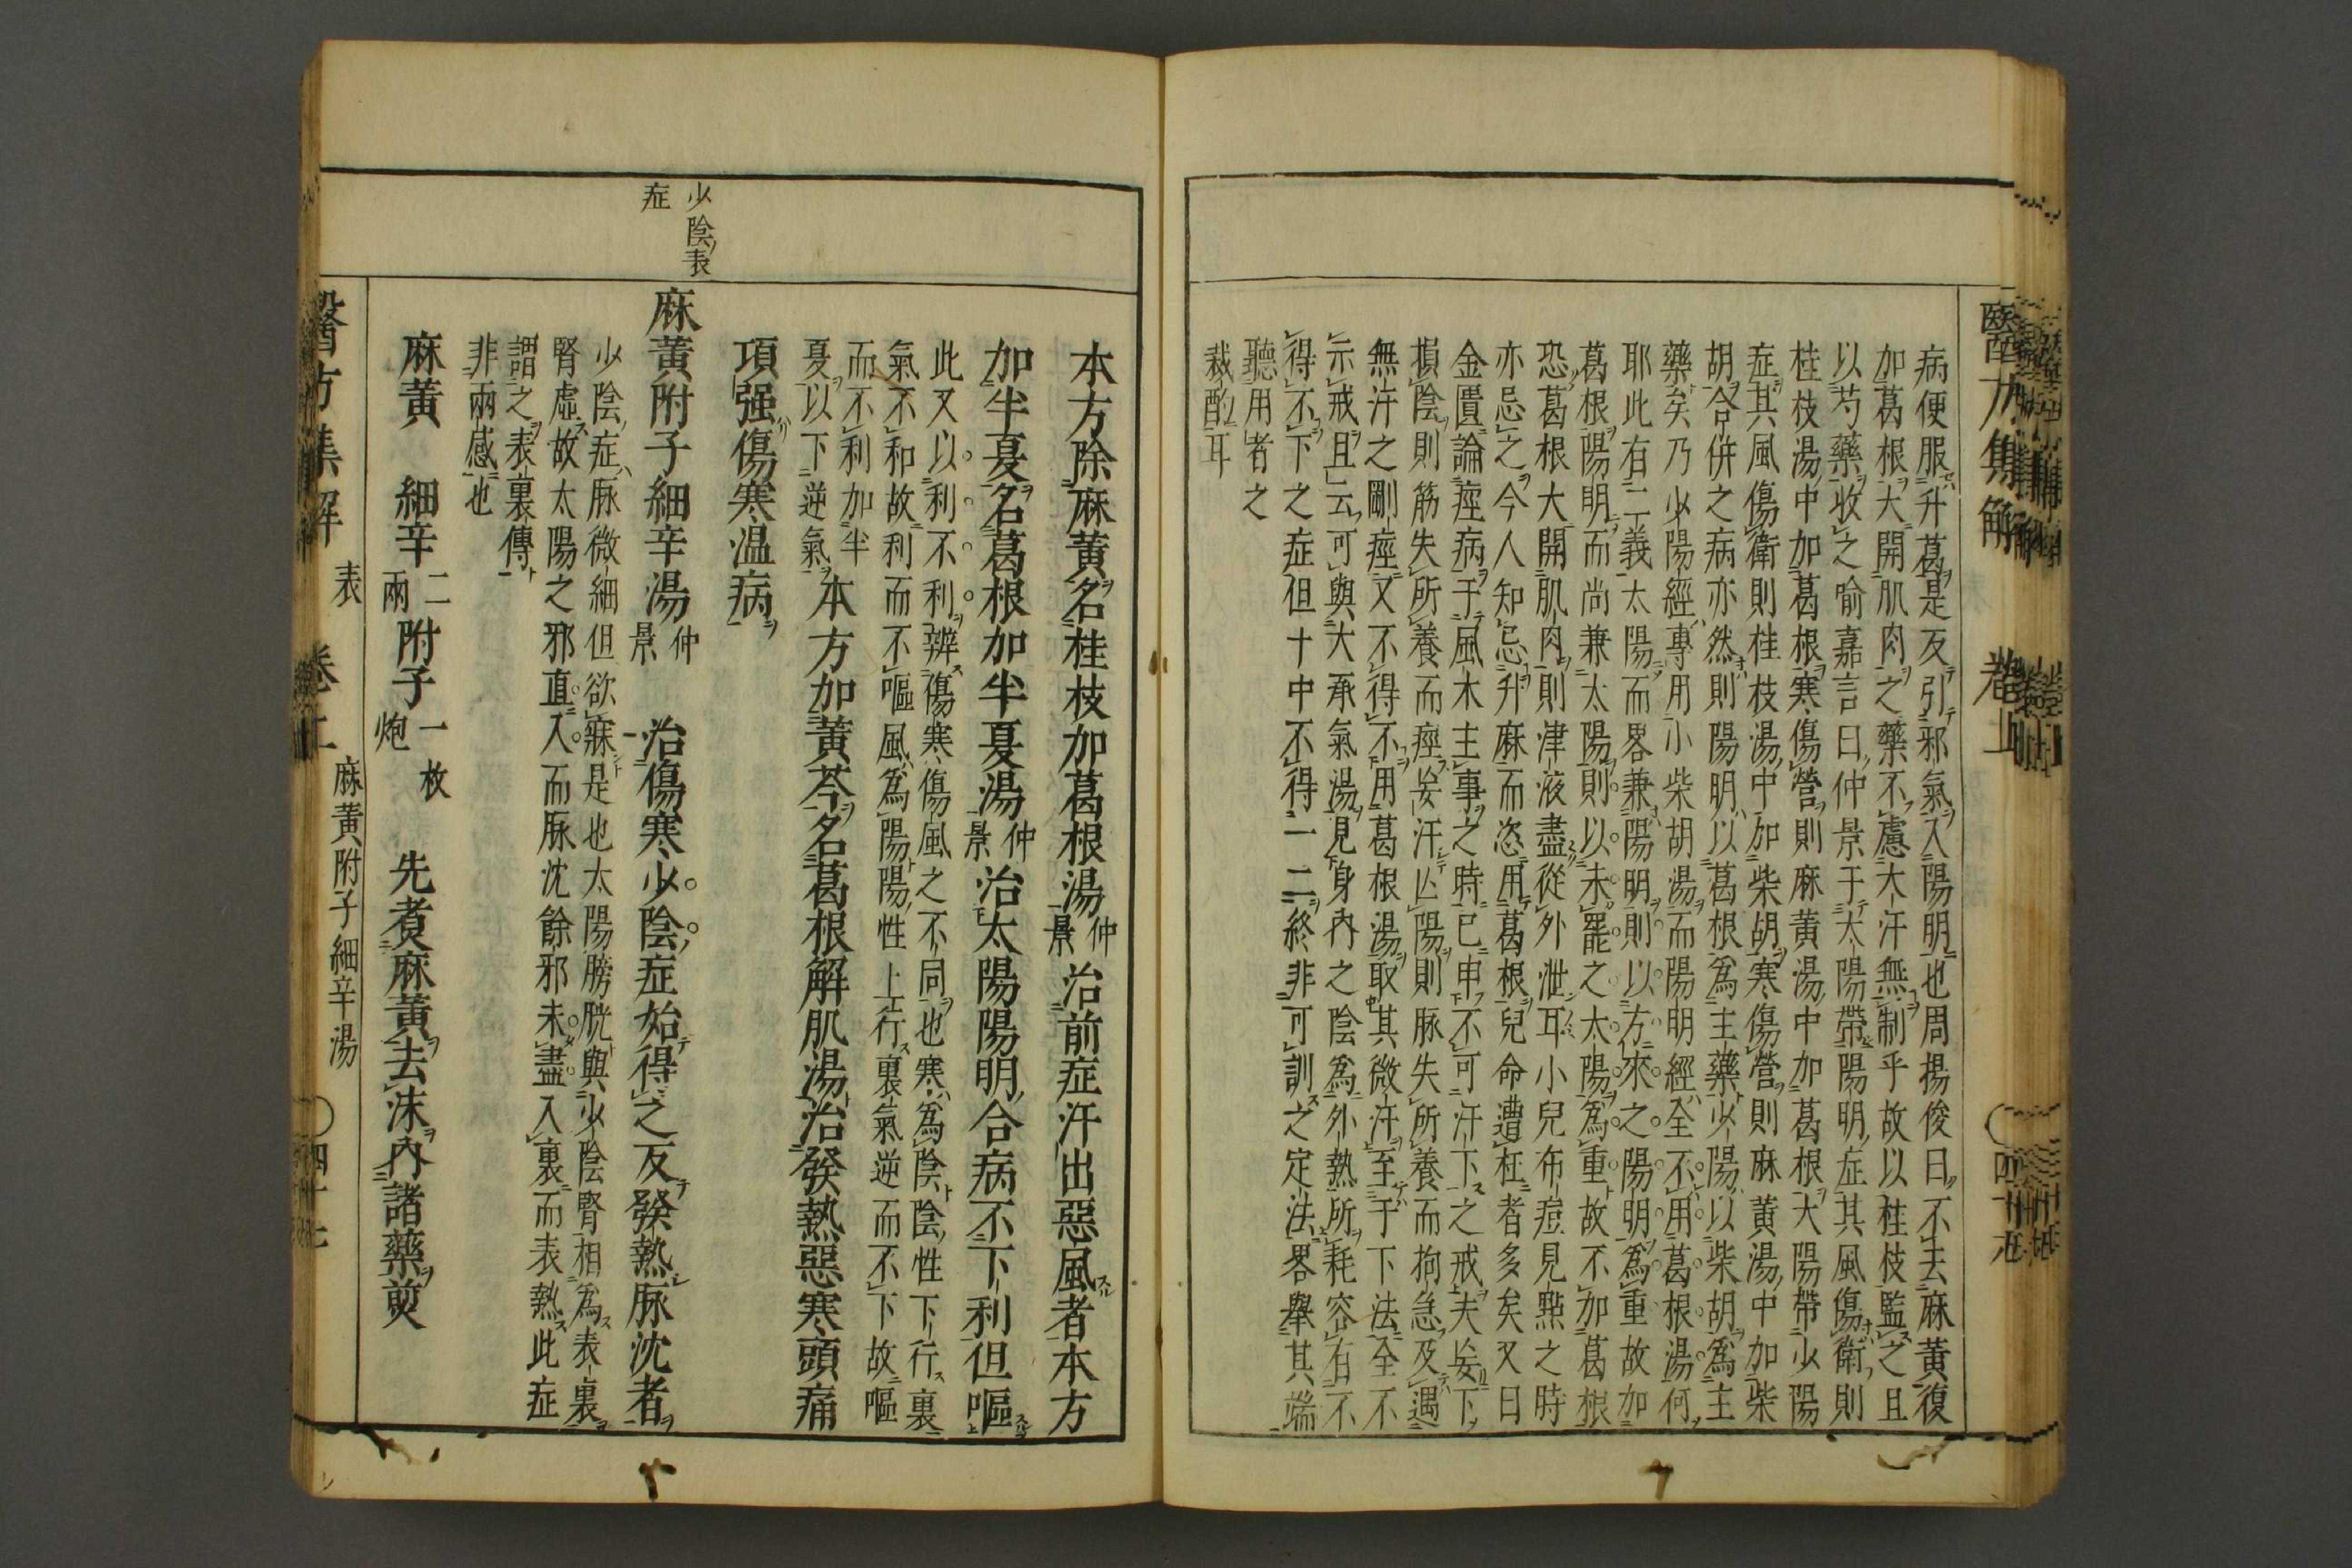 醫方集解
病便服升葛是反引邪氣入陽明也周揚俊曰不去麻黃復
加葛根大開肌肉之藥不慮大汗無制乎故以桂枝監之且
以芍藥收之喻嘉言曰仲景于太陽帶陽明症其風傷衛則
桂枝湯中加葛根寒傷營則麻黃湯中加葛根大陽帶少陽
症其風傷衛則桂枝湯中加柴胡寒傷營則麻黃湯中加柴
胡合併之病亦然則陽明以葛根爲主藥少陽以柴胡爲主
藥矣乃少陽經專用小柴胡湯而陽明經全不用葛根湯何
耶此有二義太陽而畧兼陽明則以方來之陽明爲重故加
葛根陽明而尚兼太陽則以未罷之太陽爲重故不加葛根
恐葛根大開肌肉則津液盡從外泄耳小兒布痘見點之時
亦忌之今人知忌升麻而恣用葛根兒命遭枉者多矣又曰
金匱論痙病于風木主事之時已申不可汗下之戒夫妄下
損陰則筋失所養而痙妄汗亾陽則脉失所養而拘急及遇
無汗之剛痙又不得不用葛根湯取其微汗至于下法全不
示戒且云可與大承氣湯見身內之陰爲外熱所耗容有不
得不下之症但十中不得一二終非可訓之定法畧舉其端
聽用者之
裁酌耳
本方除麻黃名桂枝加葛根湯仲景治前症汗出惡風者本方
加半夏名葛根加半夏湯仲景治太陽陽明合病不下利但嘔
此又以利不利辨傷寒傷風之不同也寒爲陰陰性下行裏
氣不和故利而不嘔風爲陽陽性上行裏氣逆而不下故嘔
而不利加半
夏以下逆氣
本方加黃芩名葛根解肌湯治發熱惡寒頭痛
項强傷寒温病
少陰表
症
麻黃附子細辛湯仲景 治傷寒少陰症始得之反發熱脉沈者
少陰症脉微細但欲寐是也太陽膀胱與少陰腎相爲表裏
腎虛故太陽之邪直入而脉沈餘邪未盡入裏而表熱此症
謂之表裏傳
非兩感也
麻黃 細辛二兩附子一枚炮 先煮麻黃去沫內諸藥煎
醫方集解 表 卷上 麻黃附子細辛湯 〇四十七